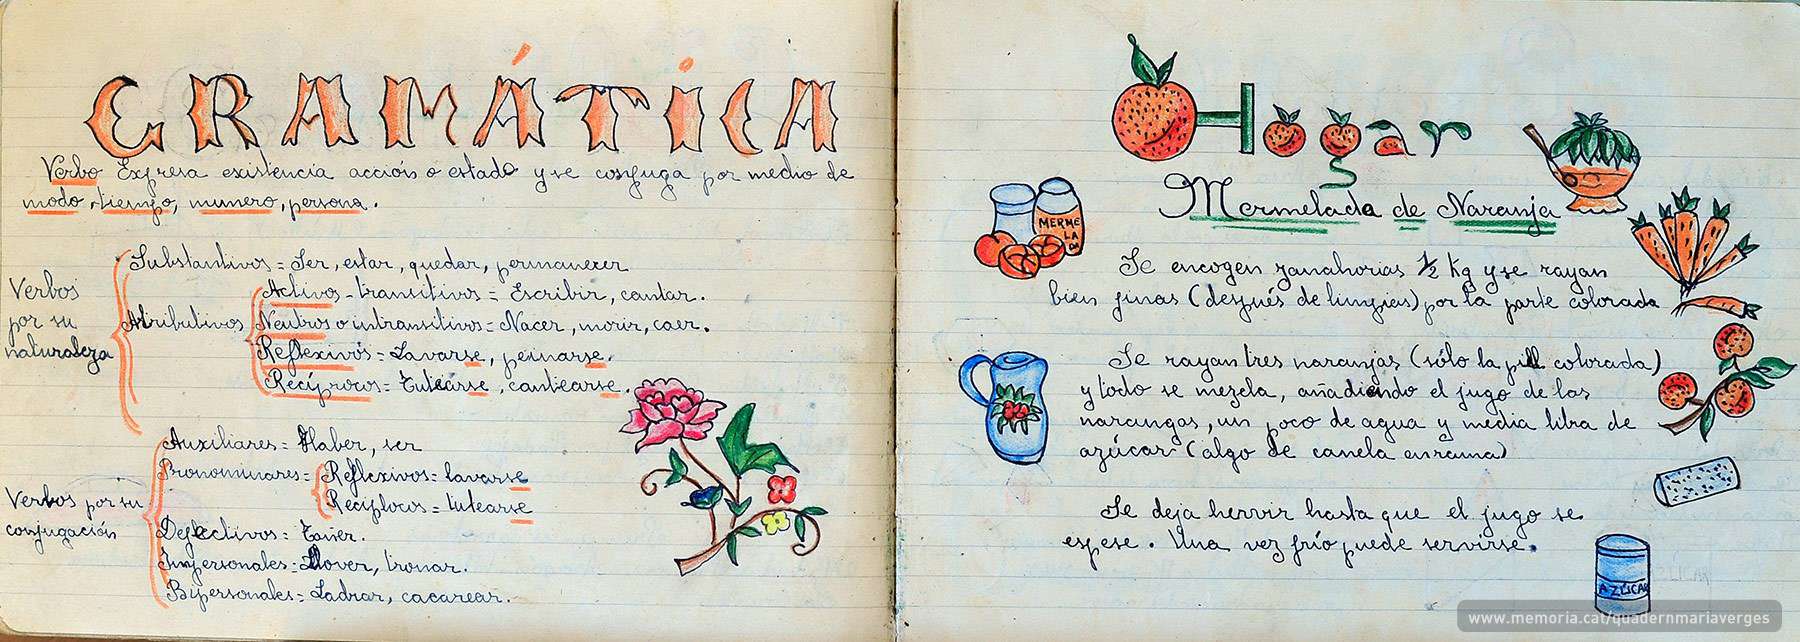 GRAMÁTICA
Verbo Expresa existencia acción o estado y se conjuga por medio de
modo, tiempo, numero, persona.
Verbos
por su
naturaleza
Substantivos = Ser, estar, quedar, permanecer
Atributivos
Activos - transitivos = Escribir, cantar.
Neutros o intransitivos = Nacer, morir, caer.
Reflexivos = Lavarse, peinarse.
Recíprocos = Tutearse, cartearse.
Verbos por su
conjugación
Auxiliares = Haber, ser
Pronominares =
Reflexivos = lavarse
Reciplocos = tutearse
Defectivos = Tañer.
Impersonales = Llover, tronar.
Bipersonales = Ladrar, cacarear.
Hogar
Mermelada de Naranja
MERME
LA
DA
Se encogen zanahorias 1/2 Kg y se rayan
bien finas (después de limpias) por la parte colorada
Se rayan tres naranjas (sólo la piel colorada)
y todo se mezcla, añadiendo el jugo de las
narangas, un poco de agua y media libra de
azúcar (algo de canela enrama)
Se deja hervir hasta que el jugo se
espese. Una vez frío puede servirse.
AZÚCAR
www.memoria.cat/quadernmariaverges